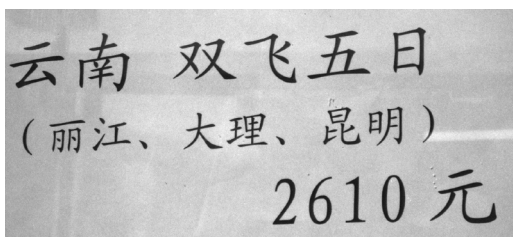 云南 双飞五日
（丽江、大理、昆明）
2610 元